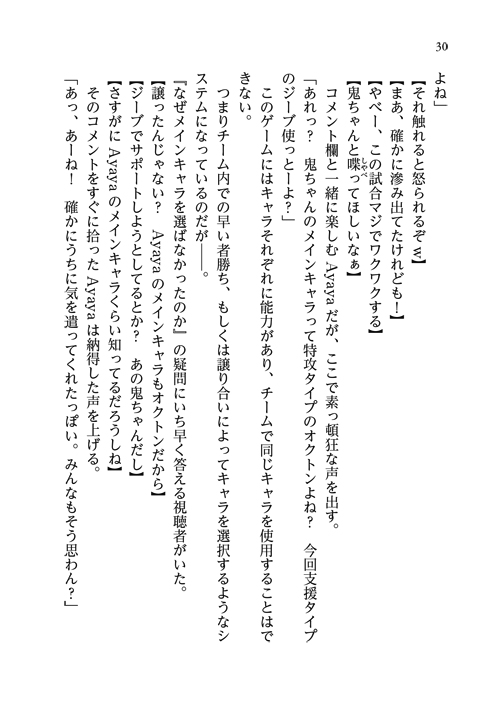 30
よね」
【それ触れると怒られるぞｗ】
【まあ、確かに滲み出てたけれども！】
【やべー、この試合マジでワクワクする】
【鬼ちゃんと喋ってほしいなぁ】
　コメント欄と一緒に楽しむ Ayaya だが、ここで素っ頓狂な声を出す。
「あれっ？　鬼ちゃんのメインキャラって特攻タイプのオクトンよね？　今回支援タイプ
のジーブ使っとーよ？」
　このゲームにはキャラそれぞれに能力があり、チームで同じキャラを使用することはで
きない。
　つまりチーム内での早い者勝ち、もしくは譲り合いによってキャラを選択するようなシ
ステムになっているのだが――。
『なぜメインキャラを選ばなかったのか』の疑問にいち早く答える視聴者がいた。
【譲ったんじゃない？　Ayaya のメインキャラもオクトンだから】
【ジーブでサポートしようとしてるとか？　あの鬼ちゃんだし】
【さすがに Ayaya のメインキャラくらい知ってるだろうしね】
　そのコメントをすぐに拾った Ayaya は納得した声を上げる。
「あっ、あーね！　確かにうちに気を遣ってくれたっぽい。みんなもそう思わん？」